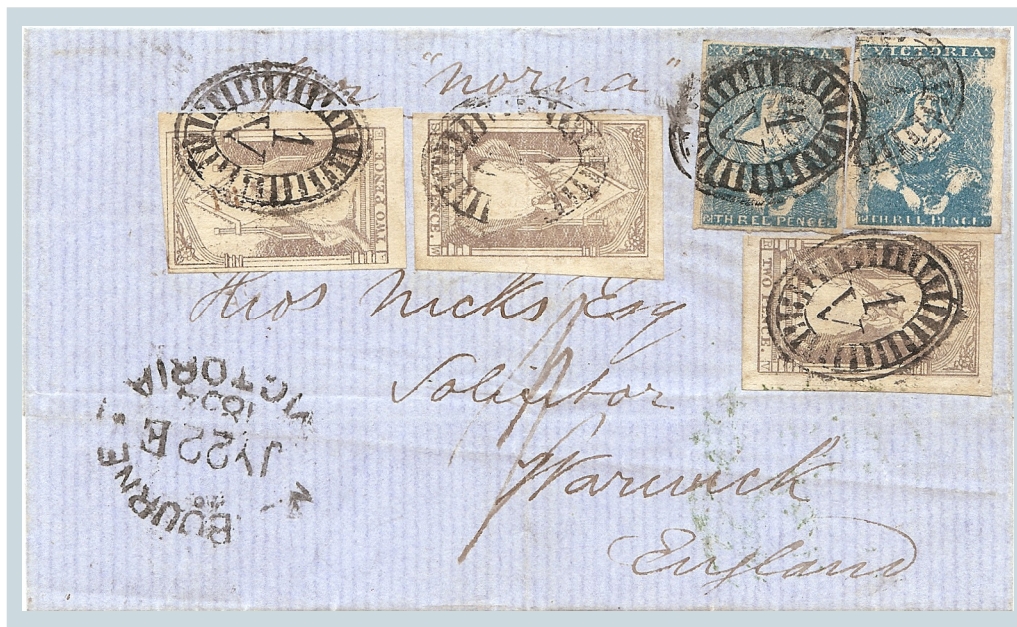 "Norna"
VICTORIA
VICTORIA
1
V
TWO PENCE
PENCE
1
V
THREE PENCE
THREE PENCE
TWO PENCE
1
V
Thos Nicks Esq
Solicitor
Warwick
England
BOURNE
VICTORIA
JY 22 E